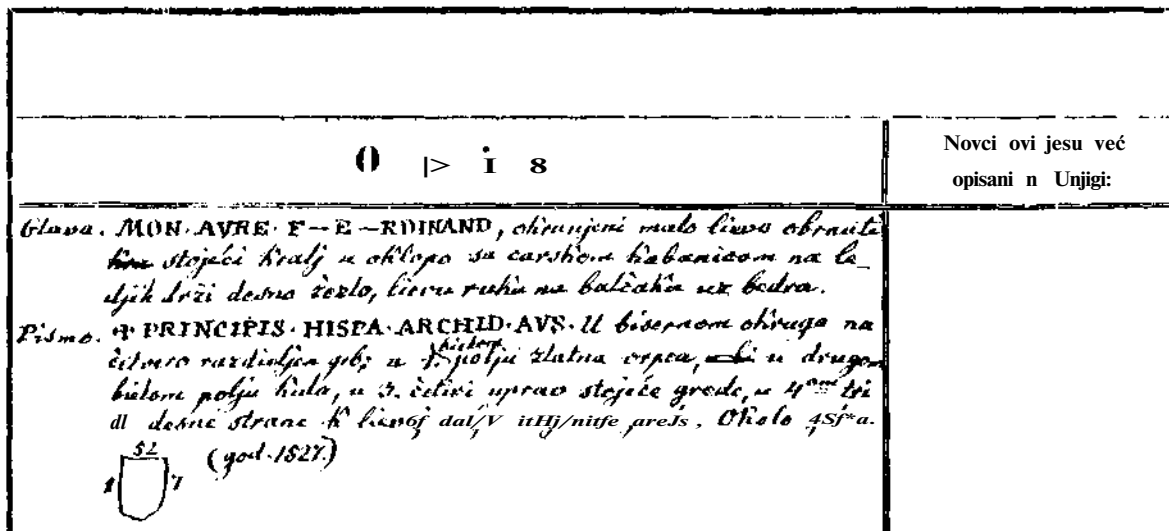 0 |> i 8
Novci ovi jesu već
opisani n Unjigi:
Glava. MON·AVRE·F–E–RDINAND, okrunjeni malo lievo obrnuti
stojeći kralj u oklopu sa carskom kabanicom na le_
djih drži desno žezlo, lievu ruku na balčaku uz bedra.
Pismo. ✠ PRINCIPIS·HISPA·ARCHID·AVS· U bisernom okrugu na
četvero razdieljen grb; u 1. bielom polju zlatna vrpca, u drugom
bielom polju kula, u 3. četiri uprav stojeće grede, u 4om tri
dl desne strane k lievoj dal/V itHj/nitfe areJs, Okolo 4Sj*a.
52
1 7 (god. 1527.)